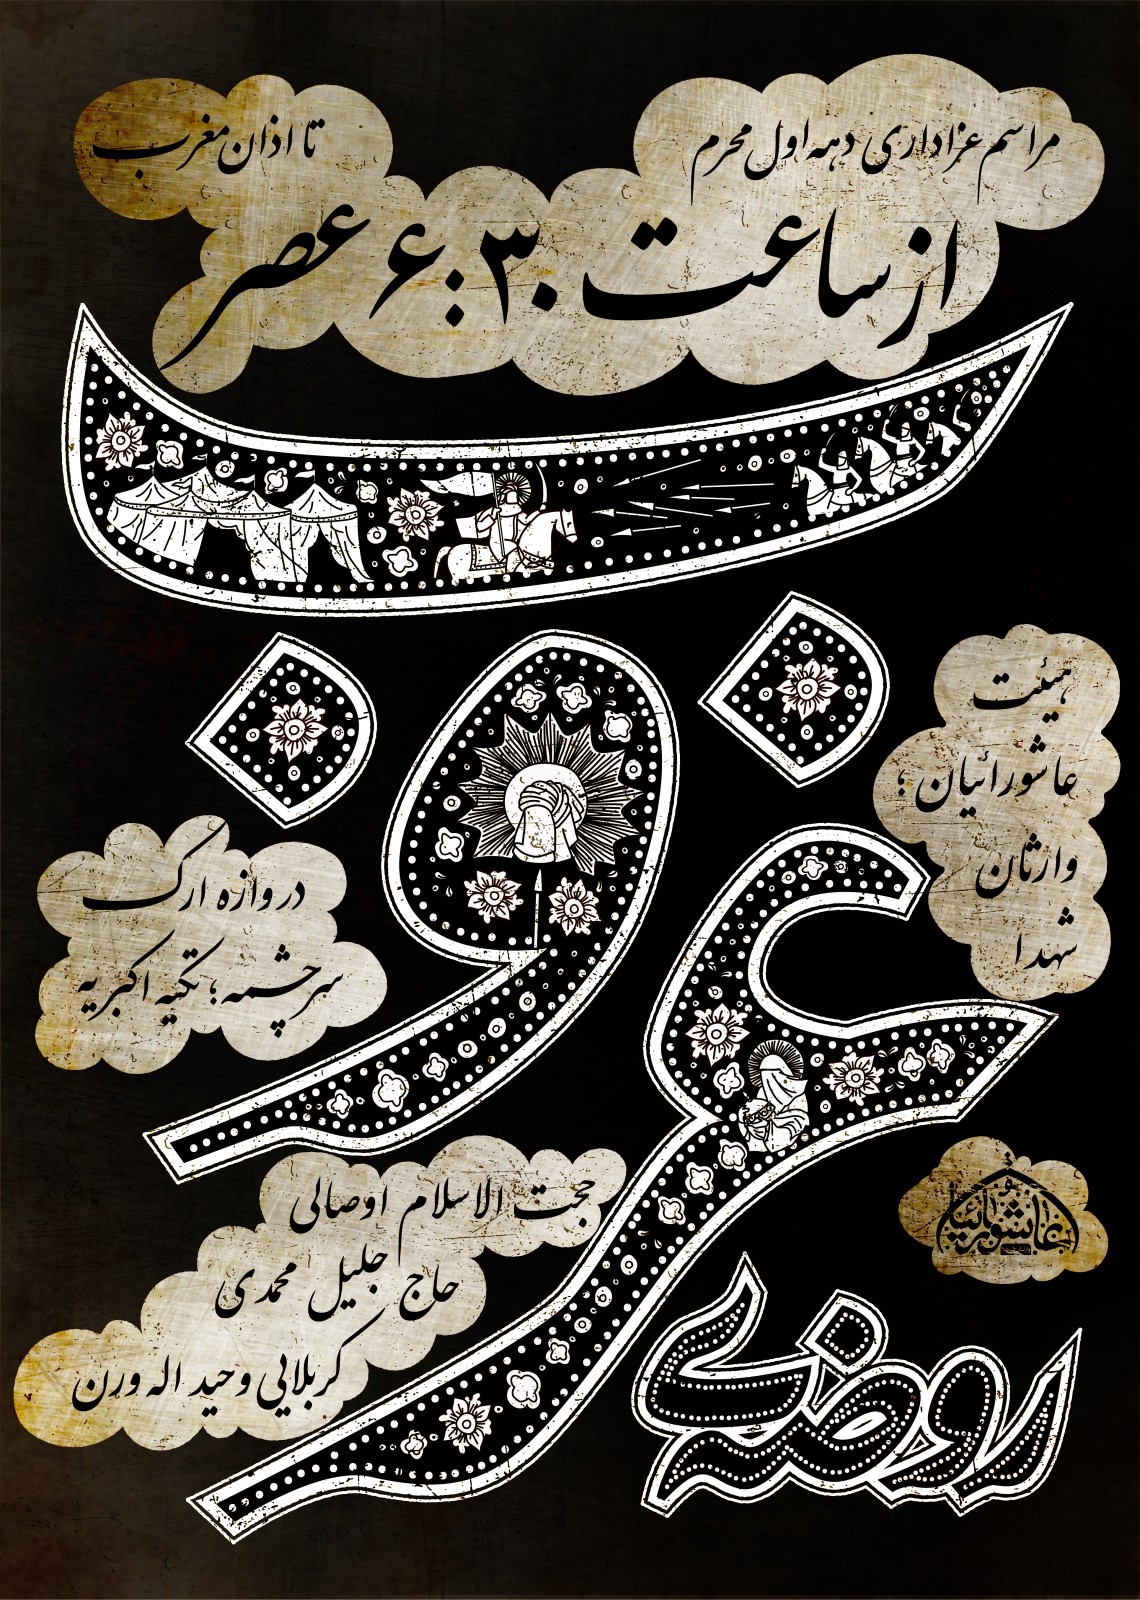 مراسم عزاداری دهه اول محرم
از ساعت ۶:۳۰ عصر
تا اذان مغرب
روضه‌ی
غروب
هیئت
عاشورائیان؛
وارثان
شهدا
دروازه ارک
سرچشمه؛ تکیه اکبریه
حجت الاسلام اوصالی
حاج جلیل محمدی
کربلایی وحید اله ورن
عاشورائیان